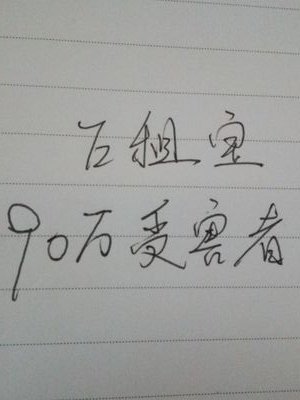 E租宝
90万受害者